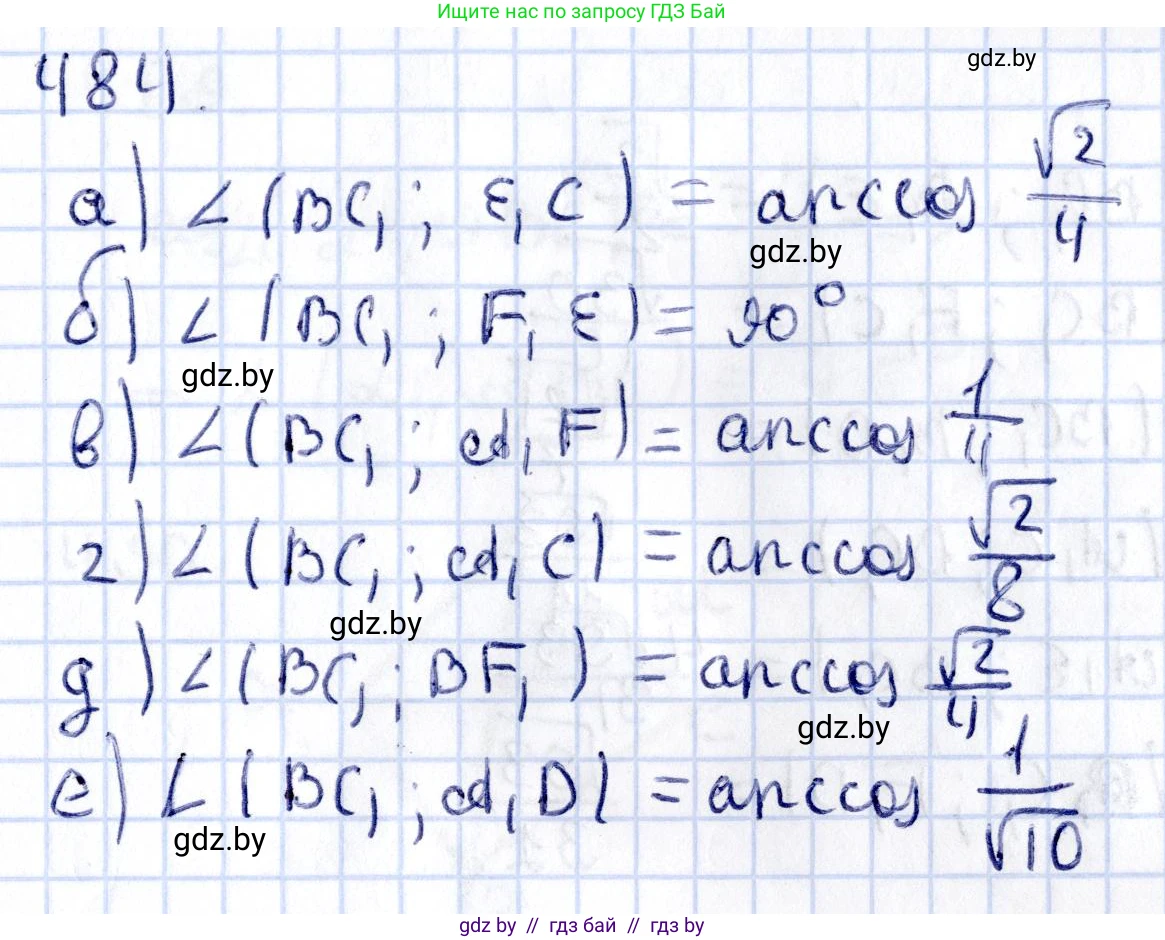 Ищите нас по запросу ГДЗ Бай
gdz.by
484.
а) ∠(BC₁; E₁C) = arccos √2/4
gdz.by
б) ∠(BC₁; F₁E) = 90°
gdz.by
в) ∠(BC₁; A₁F) = arccos 1/4
г) ∠(BC₁; A₁C) = arccos √2/8
gdz.by
д) ∠(BC₁; BF₁) = arccos √2/4
gdz.by
е) ∠(BC₁; A₁D) = arccos 1/√10
gdz.by
gdz by // гдз бай // гдз by